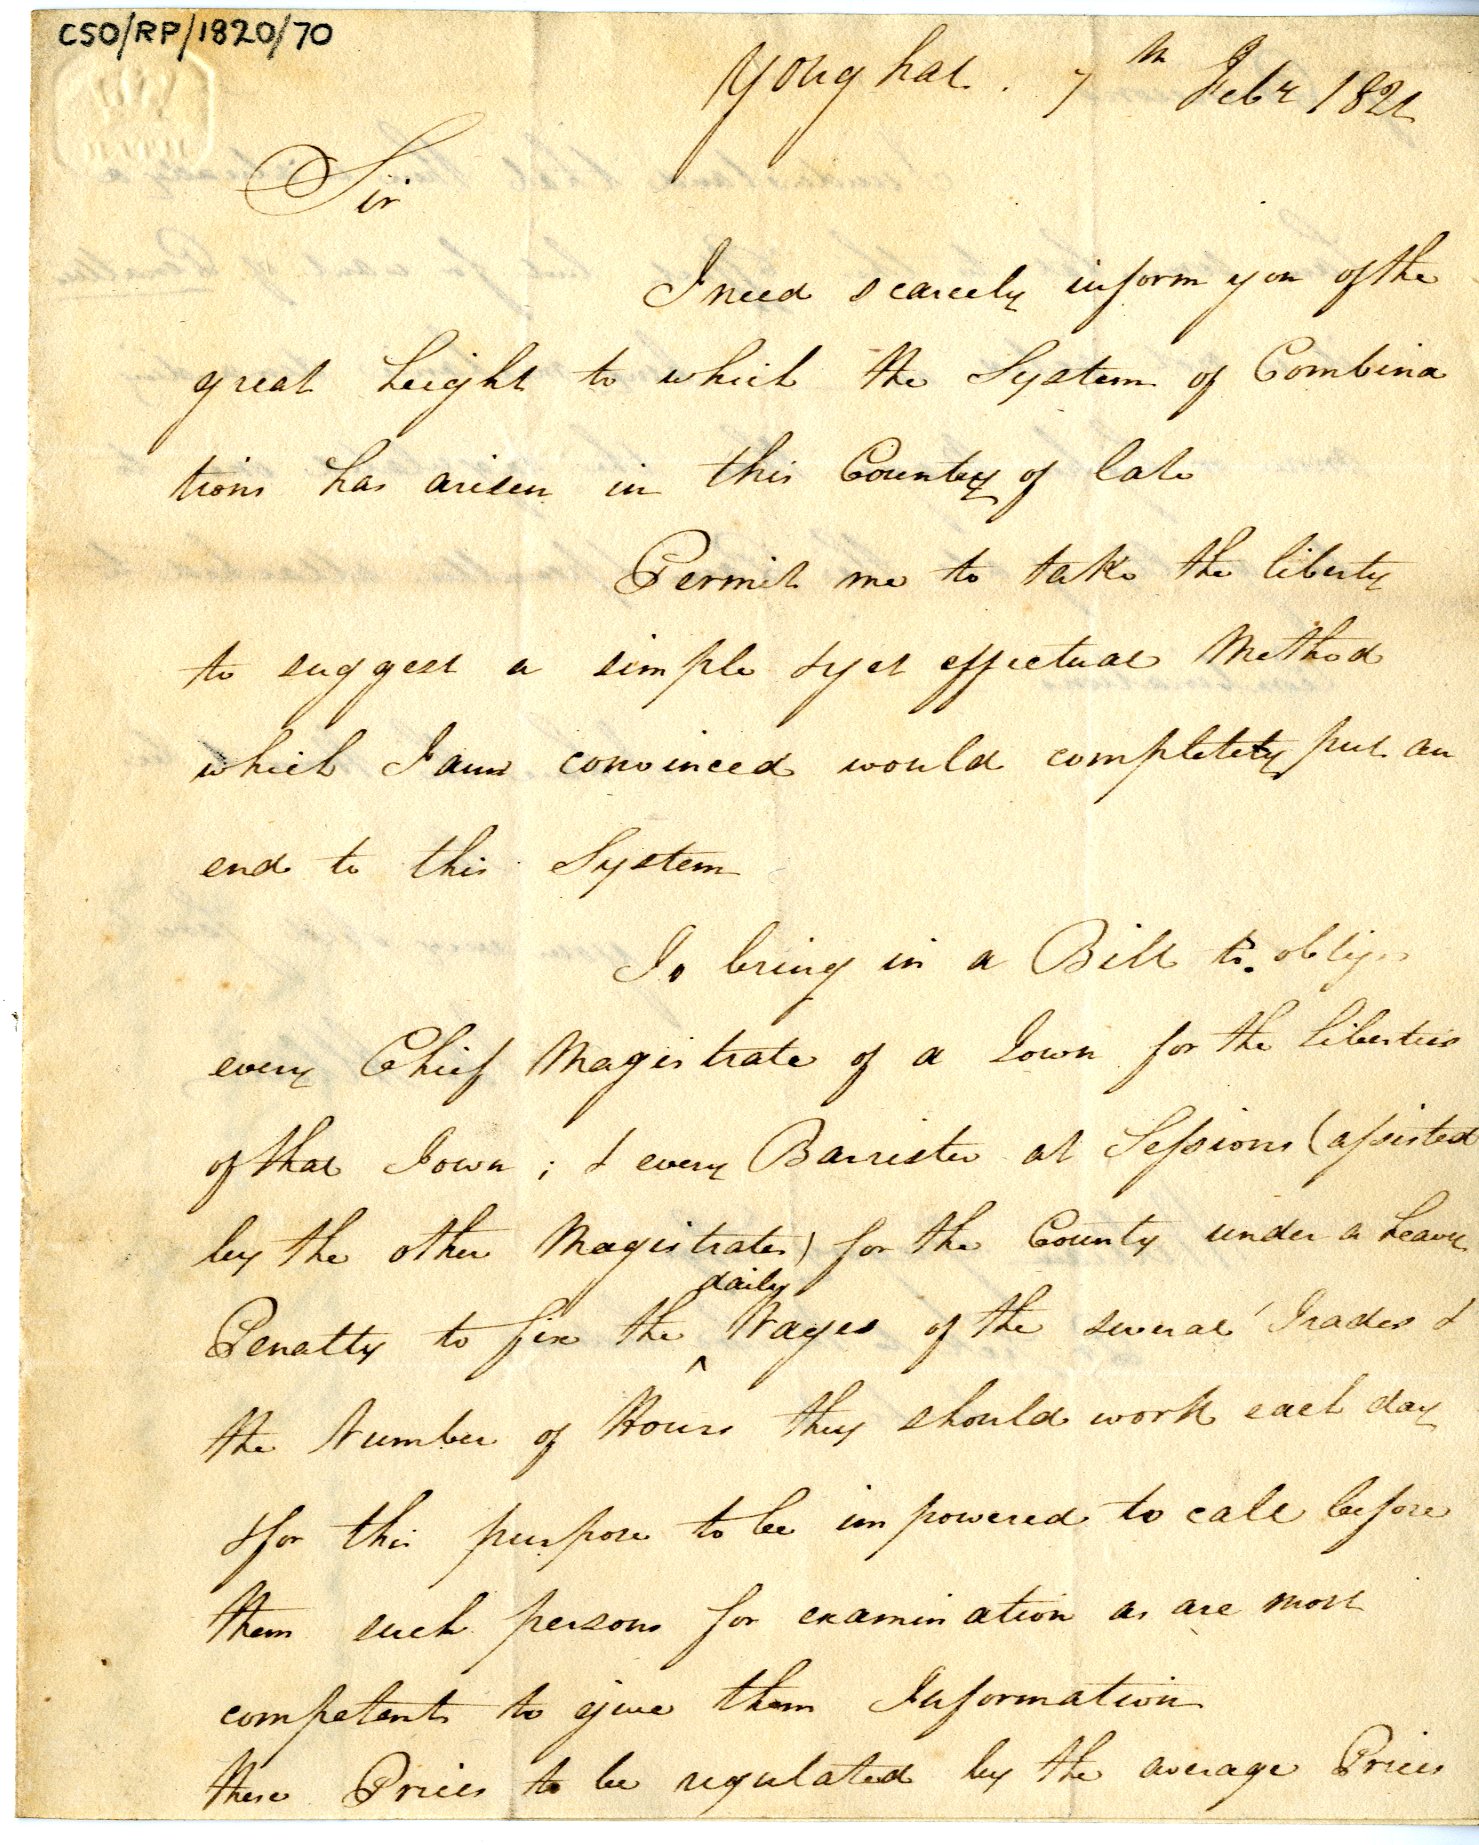 CSO/RP/1820/70
Youghal. 7th Feby 1820
Sir
I need scarcely inform you of the
great height to which the System of Combina
tions has arisen in this Country of late
Permit me to take the liberty
to suggest a simple & yet effectual Method
which I am convinced would completely put an
end to this System
To bring in a Bill to oblige
every Chief Magistrate of a Town for the liberties
of that Town; & every Barrister at Sessions (assisted
by the other Magistrates) for the County under a heavy
daily
Penalty to fix the ^ Wages of the several Trades &
the Number of Hours they should work each day
& for this purpose to be impowered to call before
them such persons for examination as are most
competent to give them Information
these Prices to be regulated by the average Prices